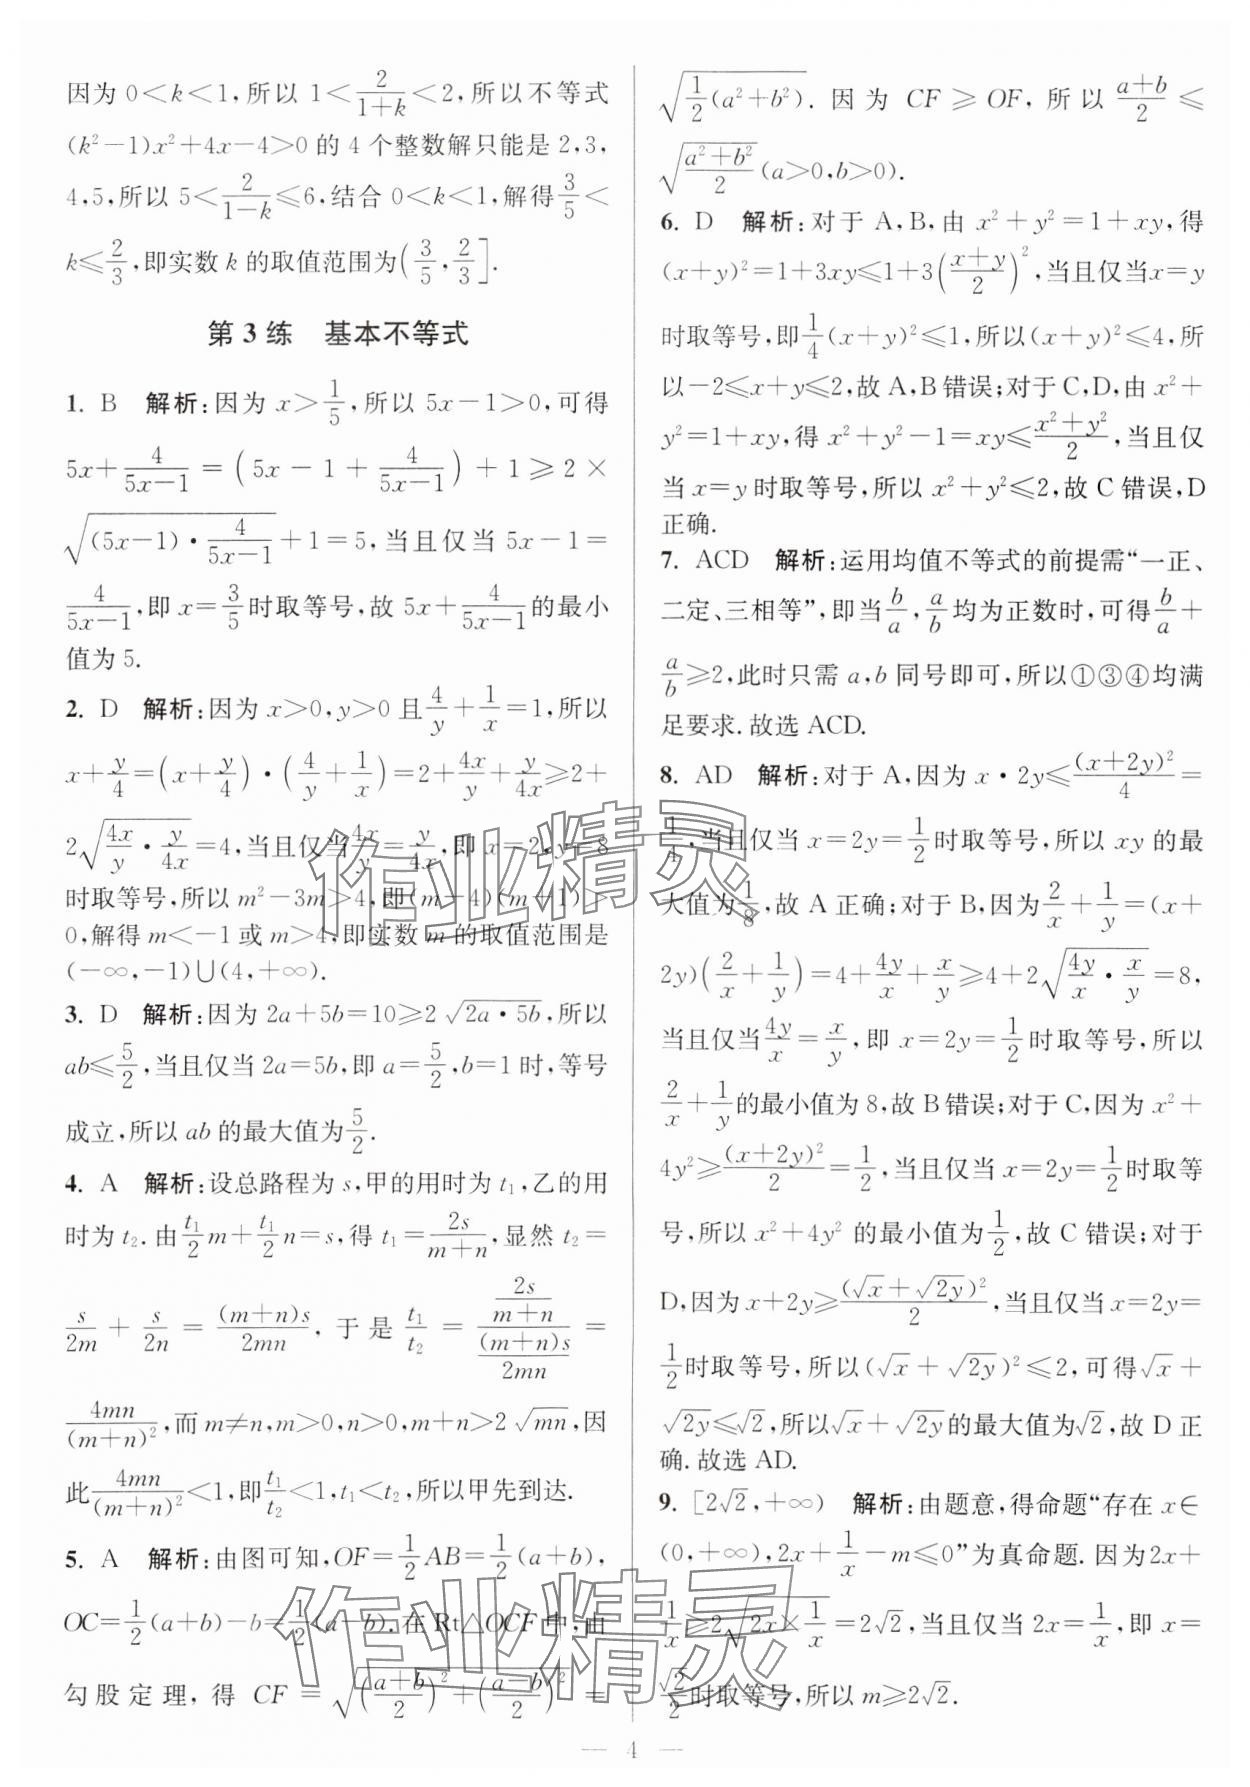 因为 0<k<1,所以 1<\frac{2}{1+k}<2,所以不等式
(k²-1)x²+4x-4>0 的 4 个整数解只能是 2,3,
4,5,所以 5<\frac{2}{1-k}≤6,结合 0<k<1,解得\frac{3}{5}<
k≤\frac{2}{3},即实数 k 的取值范围为(\frac{3}{5},\frac{2}{3}].
第 3 练 基本不等式
1. B 解析:因为 x>\frac{1}{5},所以 5x-1>0,可得
5x+\frac{4}{5x-1}=(5x-1+\frac{4}{5x-1})+1≥2×
\sqrt{(5x-1)·\frac{4}{5x-1}}+1=5,当且仅当 5x-1=
\frac{4}{5x-1},即 x=\frac{3}{5}时取等号,故 5x+\frac{4}{5x-1}的最小
值为 5.
2. D 解析:因为 x>0,y>0 且\frac{4}{y}+\frac{1}{x}=1,所以
x+\frac{y}{4}=(x+\frac{y}{4})·(\frac{4}{y}+\frac{1}{x})=2+\frac{4x}{y}+\frac{y}{4x}≥2+
2\sqrt{\frac{4x}{y}·\frac{y}{4x}}=4,当且仅当\frac{4x}{y}=\frac{y}{4x},即 x=2,y=8
时取等号,所以 m²-3m>4,即(m-4)(m+1)>
0,解得 m<-1 或 m>4,即实数 m 的取值范围是
(-∞,-1)∪(4,+∞).
3. D 解析:因为 2a+5b=10≥2\sqrt{2a·5b},所以
ab≤\frac{5}{2},当且仅当 2a=5b,即 a=\frac{5}{2},b=1 时,等号
成立,所以 ab 的最大值为\frac{5}{2}.
4. A 解析:设总路程为 s,甲的用时为 t₁,乙的用
时为 t₂.由\frac{t₁}{2}m+\frac{t₁}{2}n=s,得 t₁=\frac{2s}{m+n},显然 t₂=
\frac{s}{2m}+\frac{s}{2n}=\frac{(m+n)s}{2mn},于是\frac{t₁}{t₂}=\frac{\frac{2s}{m+n}}{\frac{(m+n)s}{2mn}}=
\frac{4mn}{(m+n)²},而 m≠n,m>0,n>0,m+n>2\sqrt{mn},因
此\frac{4mn}{(m+n)²}<1,即\frac{t₁}{t₂}<1,t₁<t₂,所以甲先到达.
5. A 解析:由图可知,OF=\frac{1}{2}AB=\frac{1}{2}(a+b),
OC=\frac{1}{2}(a+b)-b=\frac{1}{2}(a-b).在 Rt△OCF 中,由
勾股定理,得 CF=\sqrt{(\frac{a+b}{2})²+(\frac{a-b}{2})²}=
\sqrt{\frac{1}{2}(a²+b²)}.因为 CF≥OF,所以\frac{a+b}{2}≤
\sqrt{\frac{a²+b²}{2}}(a>0,b>0).
6. D 解析:对于 A,B,由 x²+y²=1+xy,得
(x+y)²=1+3xy≤1+3(\frac{x+y}{2})²,当且仅当x=y
时取等号,即\frac{1}{4}(x+y)²≤1,所以(x+y)²≤4,所
以-2≤x+y≤2,故 A,B 错误;对于 C,D,由 x²+
y²=1+xy,得 x²+y²-1=xy≤\frac{x²+y²}{2},当且仅
当 x=y 时取等号,所以 x²+y²≤2,故 C 错误,D
正确.
7. ACD 解析:运用均值不等式的前提需“一正、
二定、三相等”,即当\frac{b}{a},\frac{a}{b}均为正数时,可得\frac{b}{a}+
\frac{a}{b}≥2,此时只需 a,b 同号即可,所以①③④均满
足要求.故选 ACD.
8. AD 解析:对于 A,因为 x·2y≤\frac{(x+2y)²}{4}=
\frac{1}{4},当且仅当 x=2y=\frac{1}{2}时取等号,所以 xy 的最
大值为\frac{1}{8},故 A 正确;对于 B,因为\frac{2}{x}+\frac{1}{y}=(x+
2y)(\frac{2}{x}+\frac{1}{y})=4+\frac{4y}{x}+\frac{x}{y}≥4+2\sqrt{\frac{4y}{x}·\frac{x}{y}}=8,
当且仅当\frac{4y}{x}=\frac{x}{y},即 x=2y=\frac{1}{2}时取等号,所以
\frac{2}{x}+\frac{1}{y}的最小值为 8,故 B 错误;对于 C,因为 x²+
4y²≥\frac{(x+2y)²}{2}=\frac{1}{2},当且仅当 x=2y=\frac{1}{2}时取等
号,所以 x²+4y² 的最小值为\frac{1}{2},故 C 错误;对于
D,因为 x+2y≥\frac{(\sqrt{x}+\sqrt{2y})²}{2},当且仅当 x=2y=
\frac{1}{2}时取等号,所以(\sqrt{x}+\sqrt{2y})²≤2,可得\sqrt{x}+
\sqrt{2y}≤\sqrt{2},所以\sqrt{x}+\sqrt{2y}的最大值为\sqrt{2},故 D 正
确.故选 AD.
9. [2\sqrt{2},+∞) 解析:由题意,得命题“存在 x∈
(0,+∞),2x+\frac{1}{x}-m≤0”为真命题.因为2x+
\frac{1}{x}≥2\sqrt{2x×\frac{1}{x}}=2\sqrt{2},当且仅当 2x=\frac{1}{x},即 x=
\frac{\sqrt{2}}{2}时取等号,所以 m≥2\sqrt{2}.
— 4 —
作业精灵
作业精灵